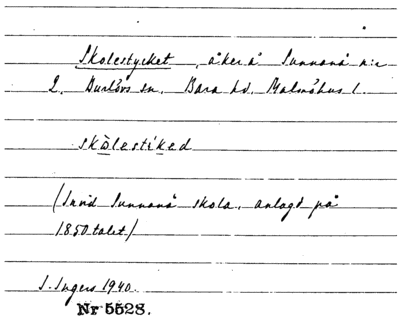 Skolestycket, åker å Sunnanå n:r
2. Burlövs sn, Bara hd, Malmöhus l.
skòlestiked
(Invid Sunnanå skola, anlagd på
1850 talet)
I. Ingers 1940.
Nr 5528.